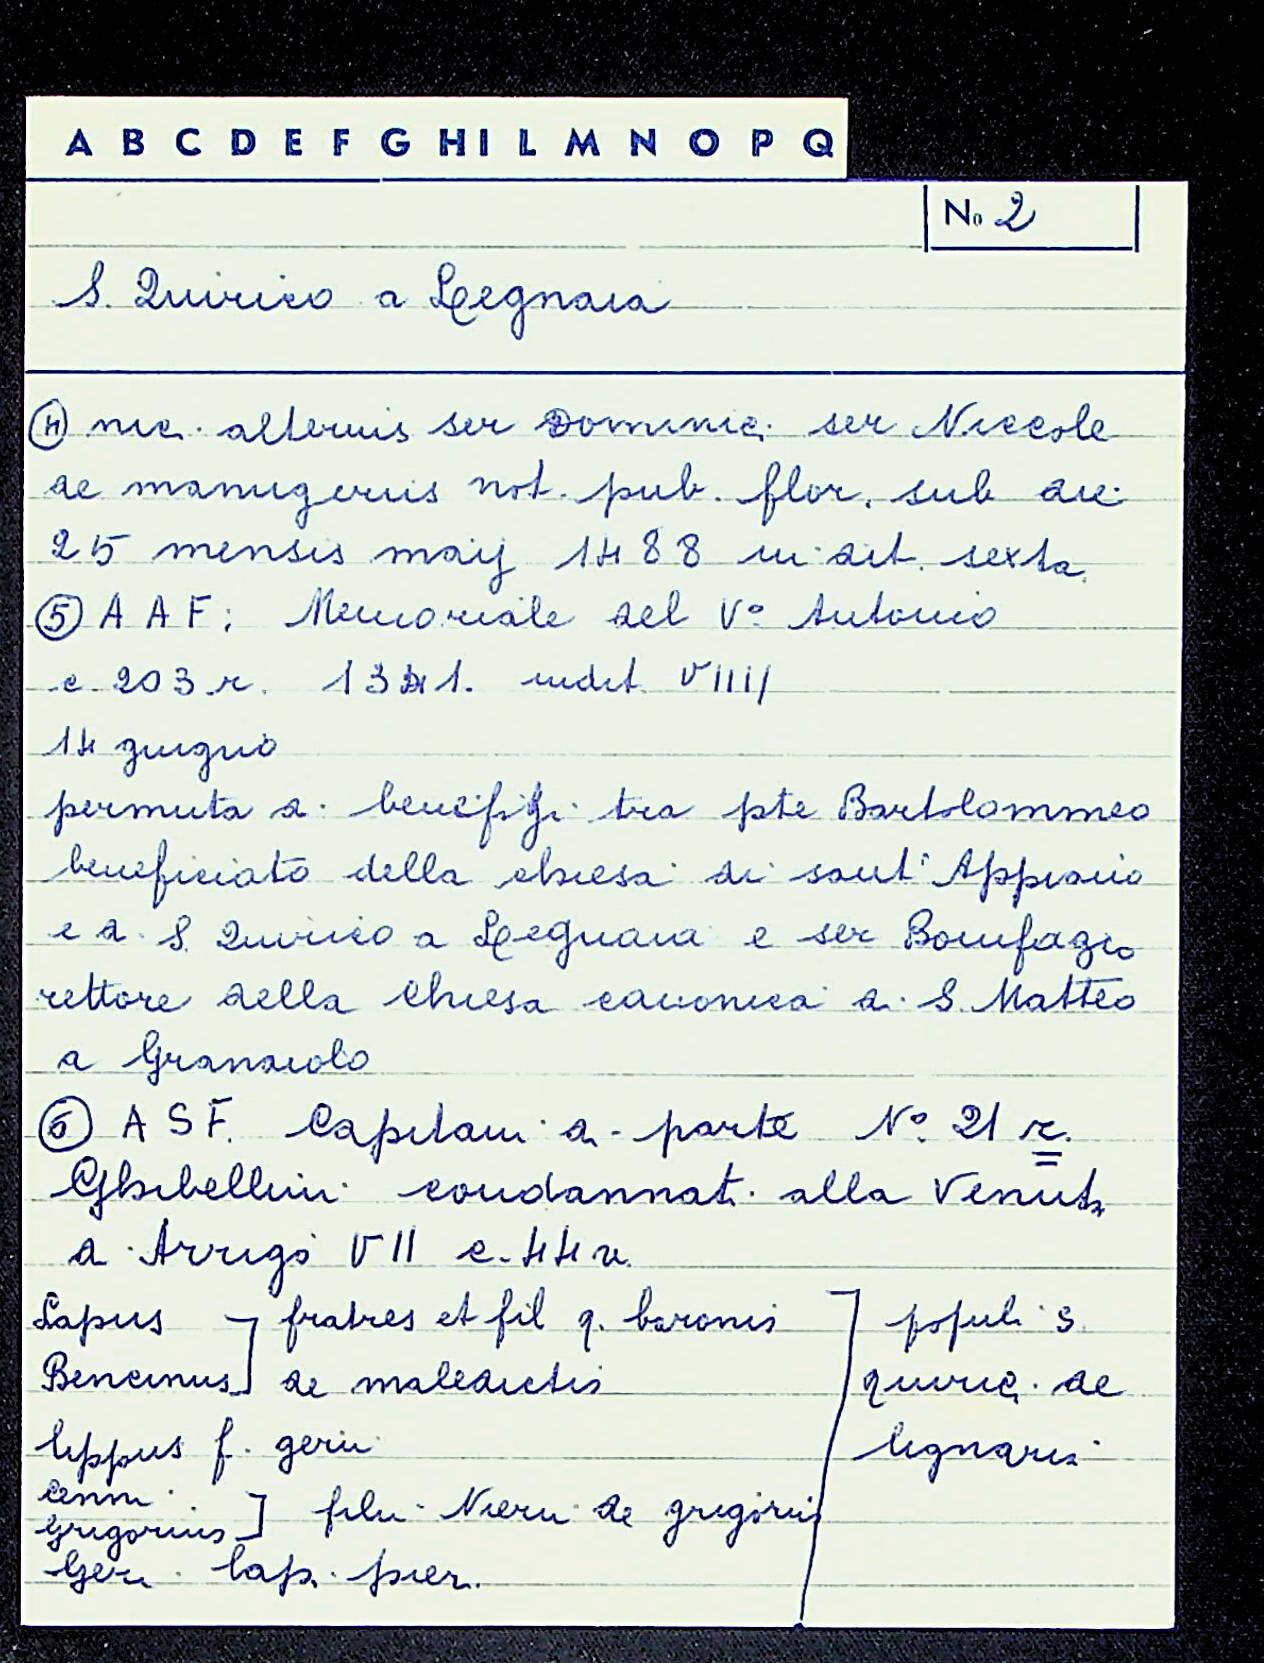 A B C D E F G H I L M N O P Q
No 2
S. Quirico a Legnaia
④ nic. alterius ser Dominici ser Niccole
de manugeriis not. pub. flor. sub die
25 mensis maij 1488 indit. sexta
⑤ A A F: Memoriale del V° Antonio
c. 203 r. 1341. indit. VIIII
14 giugno
permuta di benefizi tra pte Bartolommeo
beneficiato della chiesa di sant'Appiano
e di S. Quirico a Legnaia e ser Bonifazio
rettore della chiesa canonica di S. Matteo
a Granaiolo
⑥ A S F. Capitani di parte N° 21 r.
Ghibellini condannati alla Venuta
di Arrigo VII c. 44 v.
Lapus ] fratres et fil q. baronis ] populi S.
Bencinus ] de maledictis quirici de
lippus f. gerii lignaria
Cenni
Grigorius ] filii Nierii de grigoriis
Geri lapi pieri